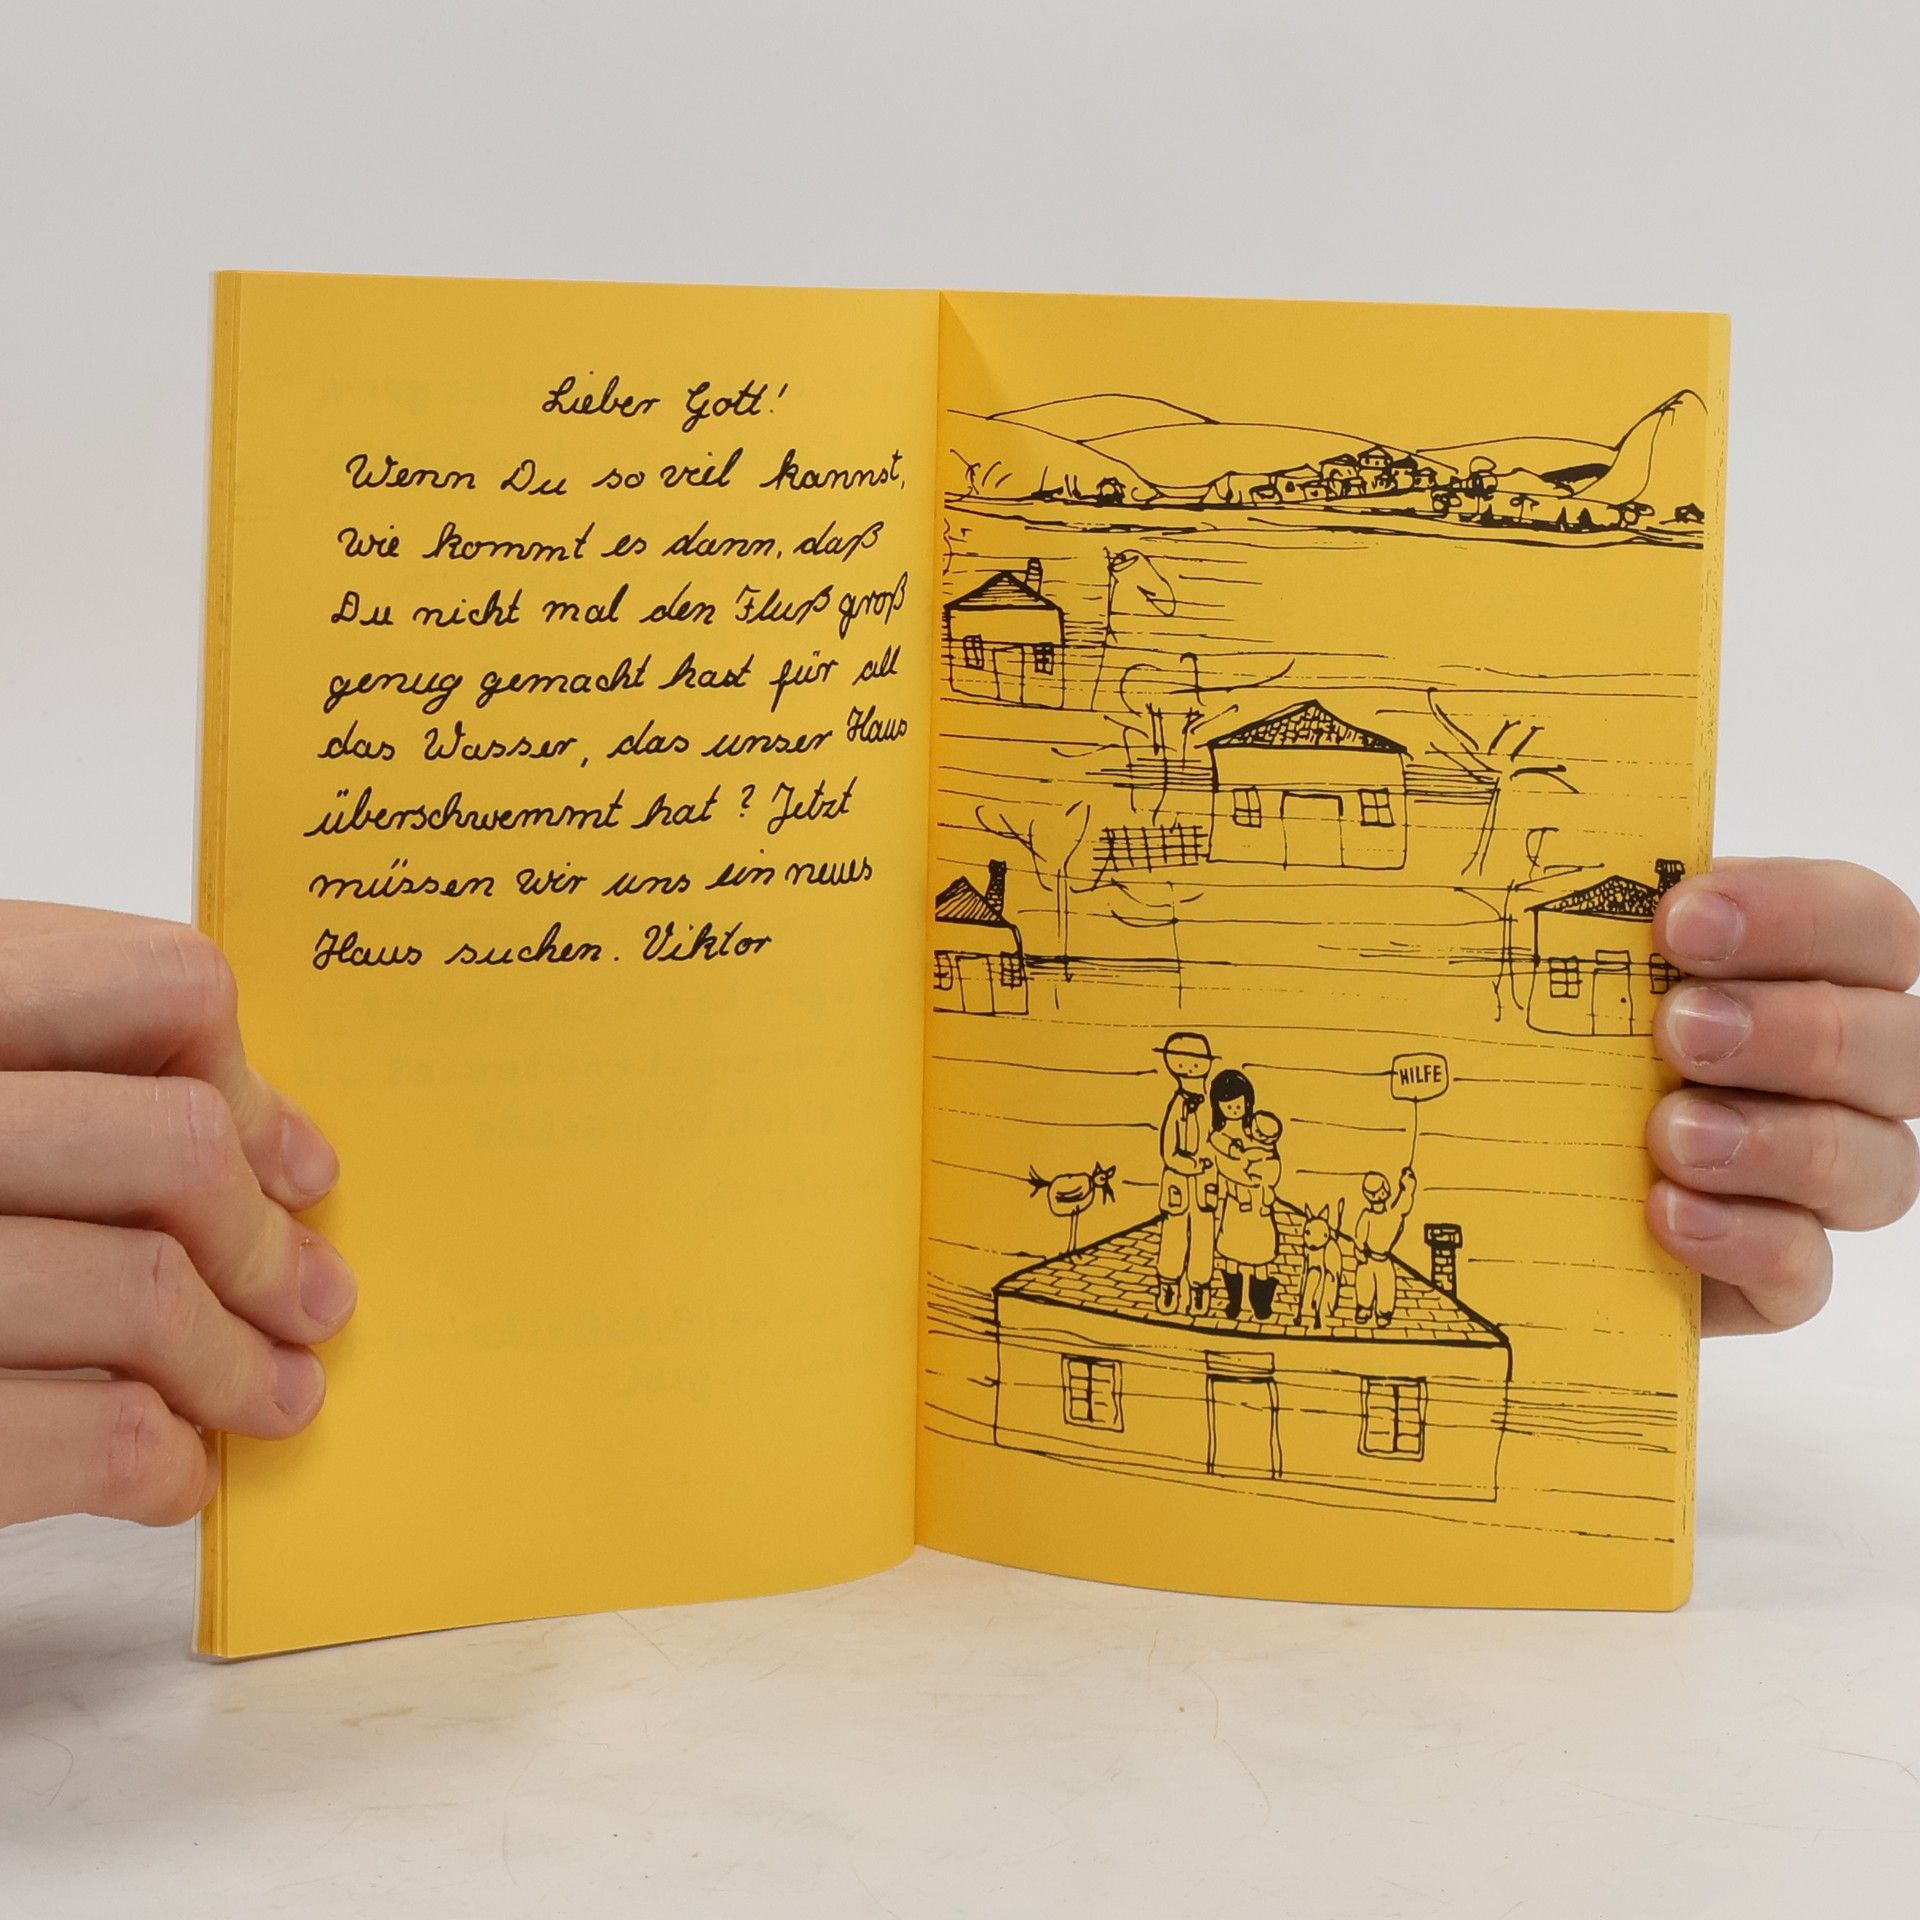 Lieber Gott!
Wenn Du so viel kannst,
wie kommt es dann, daß
Du nicht mal den Fluß groß
genug gemacht hast für all
das Wasser, das unser Haus
überschwemmt hat? Jetzt
müssen wir uns ein neues
Haus suchen. Viktor
HILFE